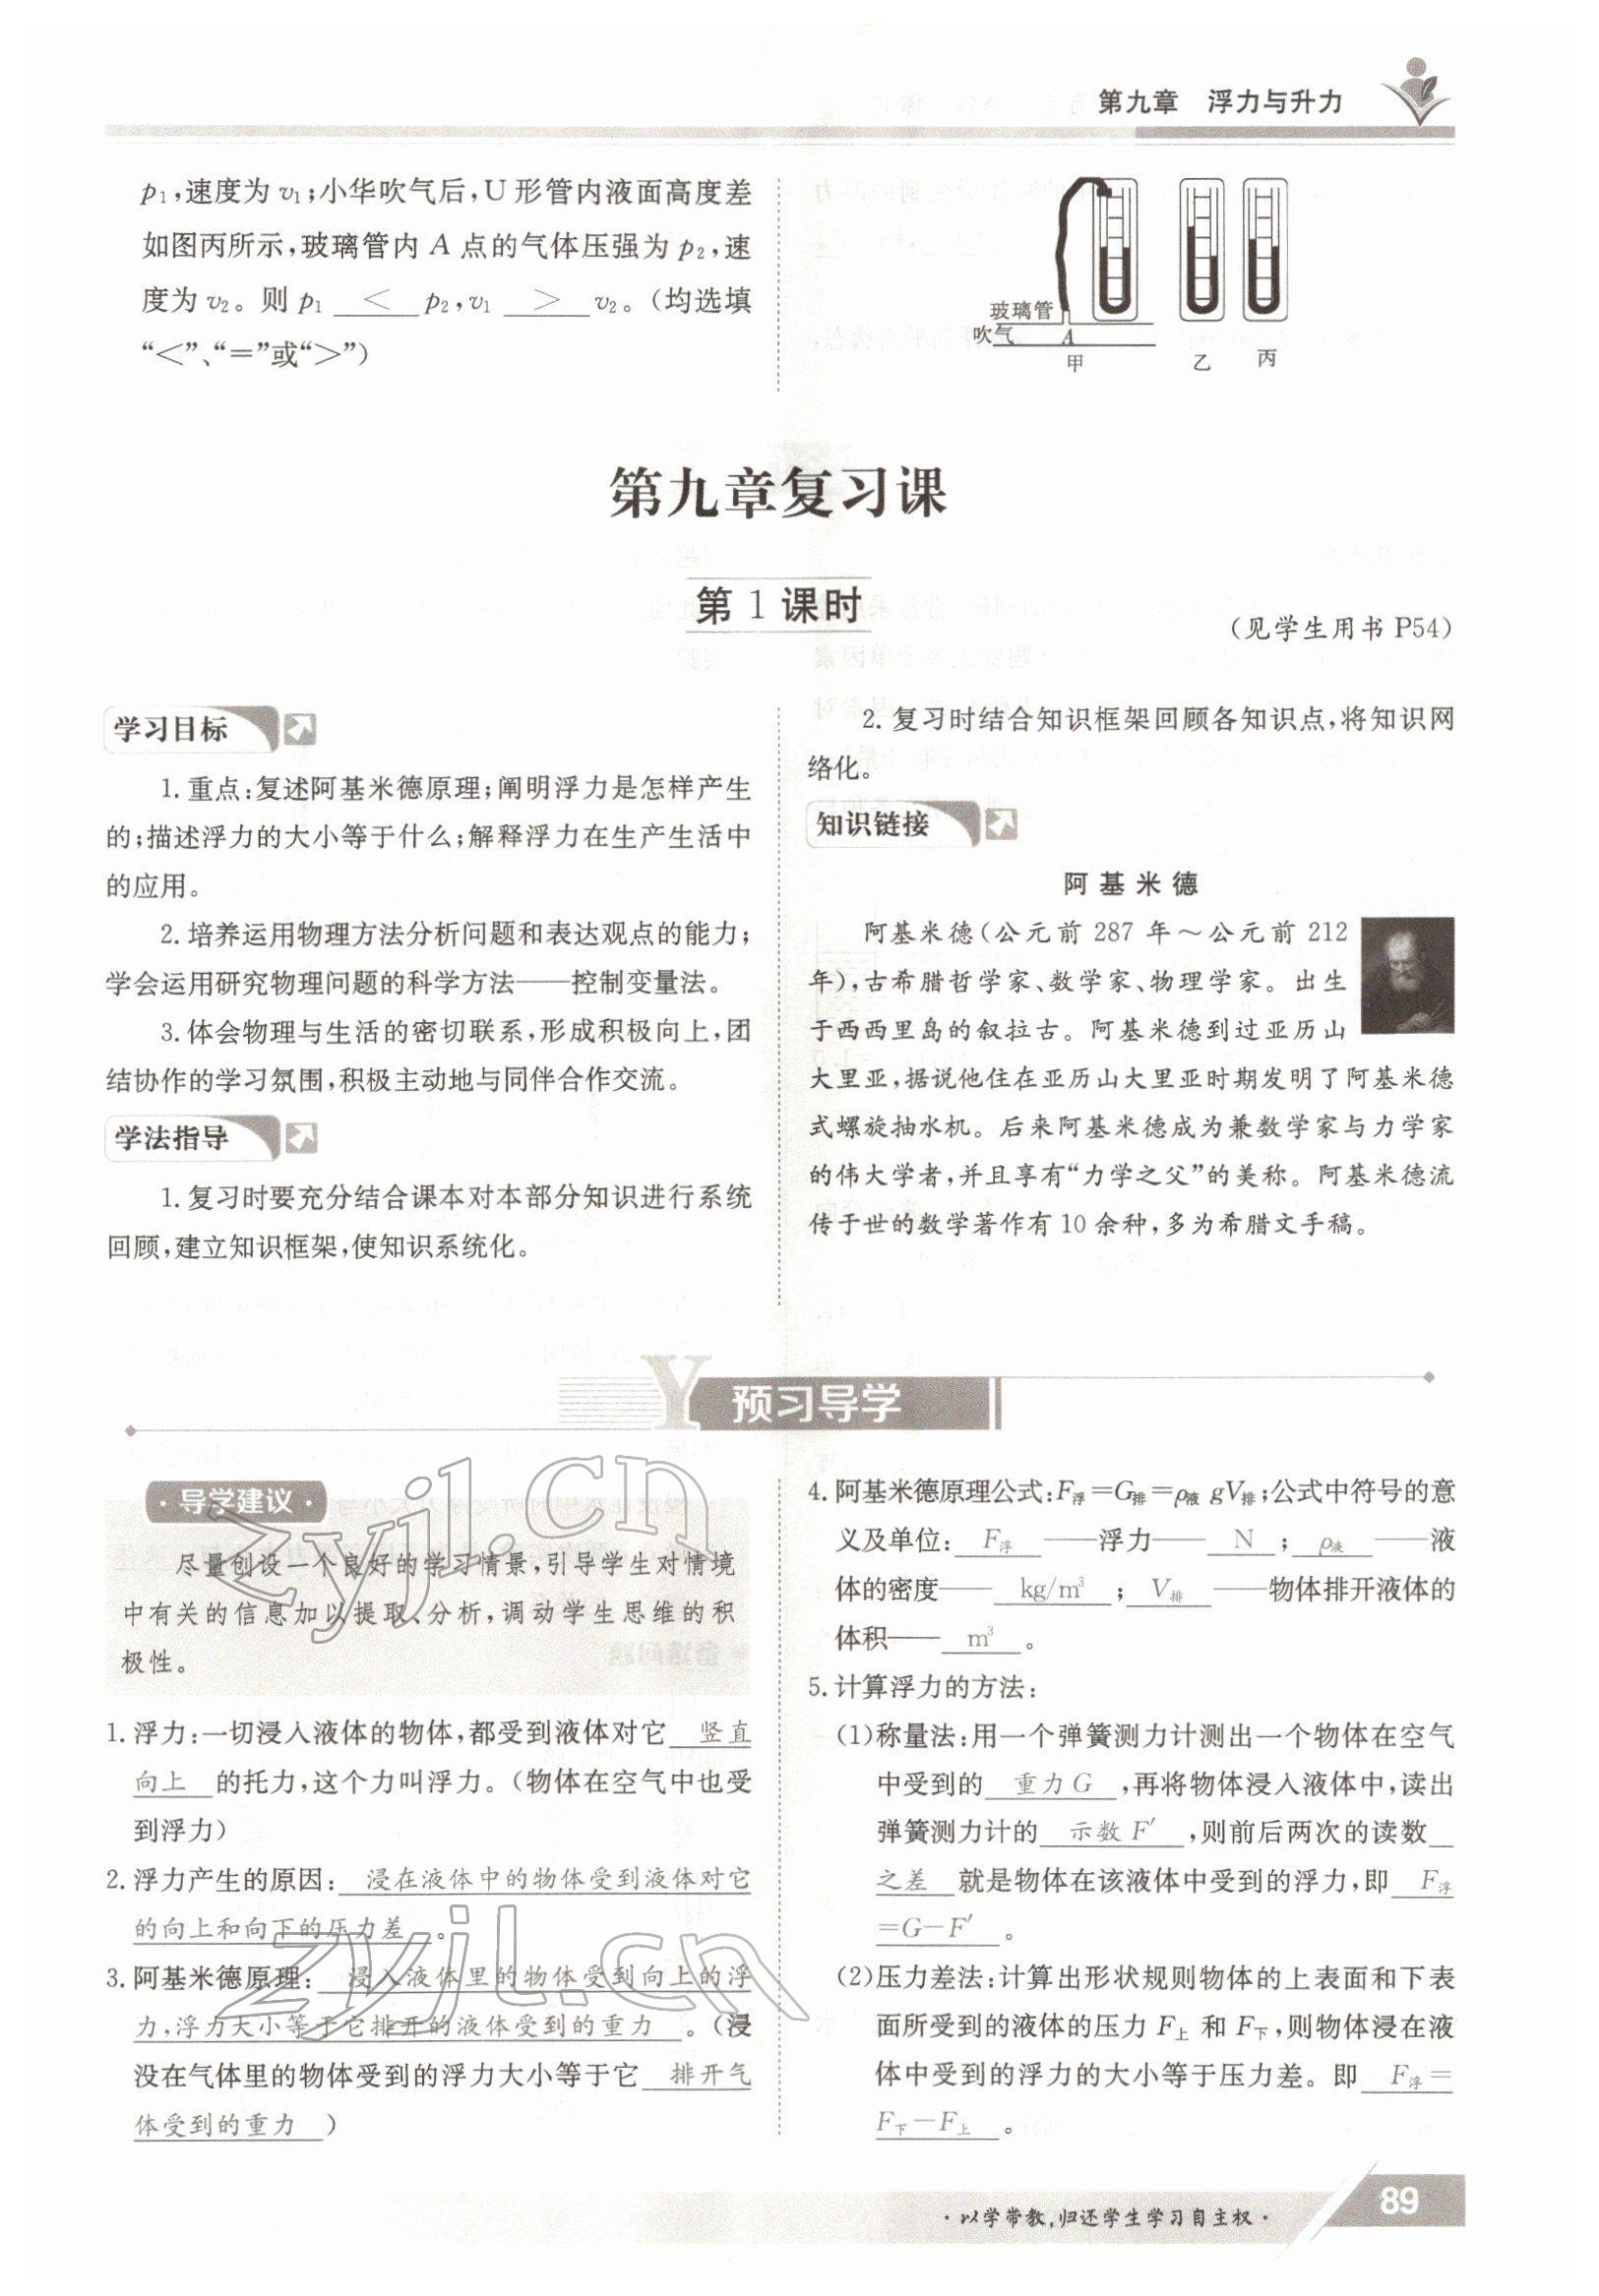 第九章　浮力与升力
p₁,速度为 v₁;小华吹气后,U 形管内液面高度差
如图丙所示,玻璃管内 A 点的气体压强为 p₂,速
度为 v₂。则 p₁ < p₂,v₁ > v₂。(均选填
“<”、“=”或“>”)
玻璃管
吹气
A
甲
乙
丙
第九章复习课
第 1 课时
(见学生用书 P54)
学习目标
1. 重点:复述阿基米德原理;阐明浮力是怎样产生
的;描述浮力的大小等于什么;解释浮力在生产生活中
的应用。
2. 培养运用物理方法分析问题和表达观点的能力;
学会运用研究物理问题的科学方法——控制变量法。
3. 体会物理与生活的密切联系,形成积极向上,团
结协作的学习氛围,积极主动地与同伴合作交流。
学法指导
1. 复习时要充分结合课本对本部分知识进行系统
回顾,建立知识框架,使知识系统化。
2. 复习时结合知识框架回顾各知识点,将知识网
络化。
知识链接
阿基米德
阿基米德(公元前 287 年~公元前 212
年),古希腊哲学家、数学家、物理学家。出生
于西西里岛的叙拉古。阿基米德到过亚历山
大里亚,据说他住在亚历山大里亚时期发明了阿基米德
式螺旋抽水机。后来阿基米德成为兼数学家与力学家
的伟大学者,并且享有“力学之父”的美称。阿基米德流
传于世的数学著作有 10 余种,多为希腊文手稿。
Y 预习导学
· 导学建议 ·
尽量创设一个良好的学习情景,引导学生对情境
中有关的信息加以提取、分析,调动学生思维的积
极性。
1. 浮力:一切浸入液体的物体,都受到液体对它 竖直
向上 的托力,这个力叫浮力。(物体在空气中也受
到浮力)
2. 浮力产生的原因: 浸在液体中的物体受到液体对它
的向上和向下的压力差 。
3. 阿基米德原理: 浸入液体里的物体受到向上的浮
力,浮力大小等于它排开的液体受到的重力 。(浸
没在气体里的物体受到的浮力大小等于它 排开气
体受到的重力 )
4. 阿基米德原理公式:F浮=G排=ρ液 gV排;公式中符号的意
义及单位: F浮 ——浮力—— N ; ρ液 ——液
体的密度—— kg/m³ ; V排 ——物体排开液体的
体积—— m³ 。
5. 计算浮力的方法:
(1)称量法:用一个弹簧测力计测出一个物体在空气
中受到的 重力 G ,再将物体浸入液体中,读出
弹簧测力计的 示数 F′ ,则前后两次的读数
之差 就是物体在该液体中受到的浮力,即 F浮
=G−F′ 。
(2)压力差法:计算出形状规则物体的上表面和下表
面所受到的液体的压力 F上 和 F下,则物体浸在液
体中受到的浮力的大小等于压力差。即 F浮=
F下−F上 。
zyjl.cn
zyjl.cn
· 以学带教,归还学生学习自主权 ·
89